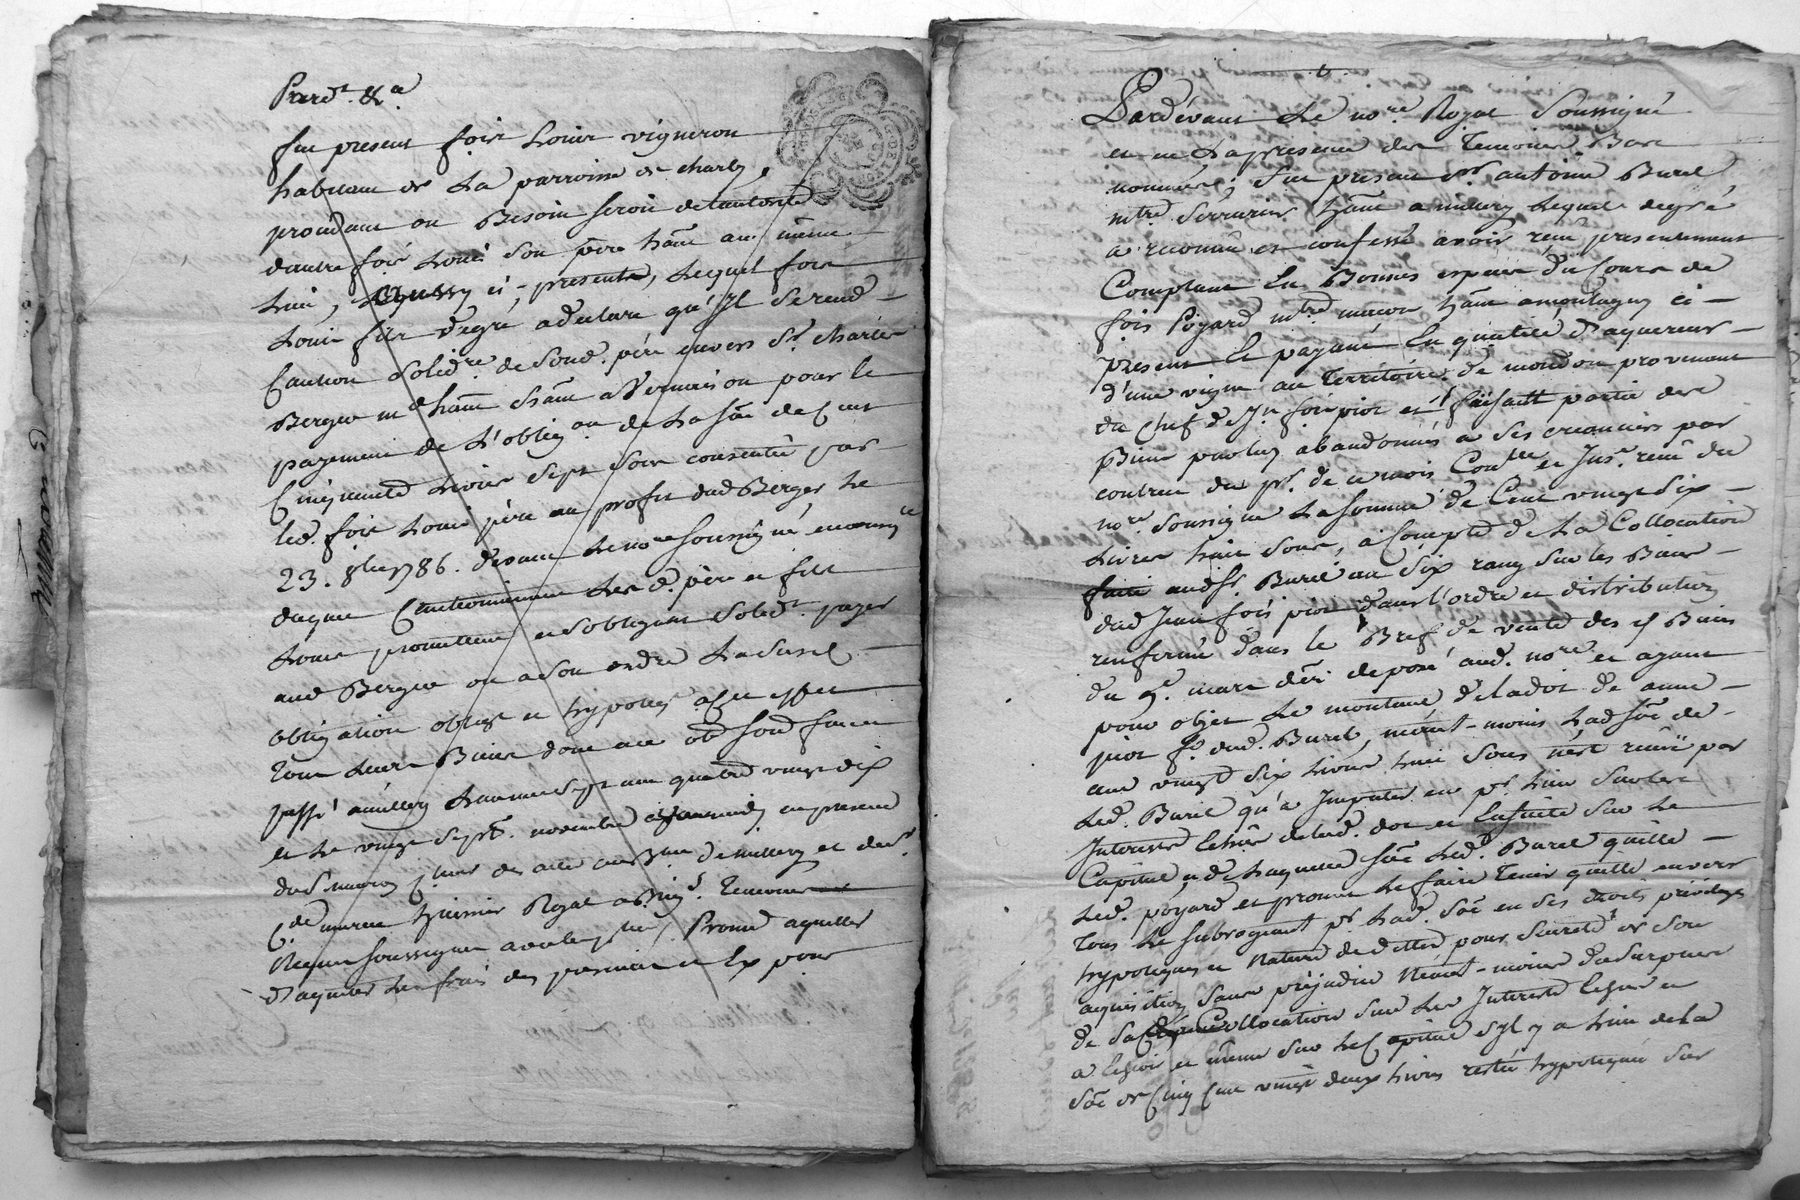 Pardt. &a
fut present fois Louis vigneron
habitant de La parroisse de charly,
procédant au Besoin seroit de Lautorité
dautre fois Louis son père hānt au même
Lieu, ci-présente, Lequel fois
Louis fils degré a déclaré qu'Il se rend
Caution solidre. de sond. père envers Sr. charles
Berger md. hānt a Vernaison pour le
payement de L'obligaon de La sōe de Cent
Cinquante Livres Sept sous consentie par
led. fois Louis père au profit dud Berger Le
23. 8bre 1786. devant Le nore soussigné
duquel Cautionnement Lesd. père et fils
Louis promettent et sobligent solidt. payer
aud Berger ou a Son ordre La susd
obligation obligt et hypoteqt a cet effet
Tous Leurs Biens dont acte
passé a millery L'an mil sept cent quatre vingt dix
et Le vingt sept. novembre en presence
de Sr
Royal Temoins
Requis soussignés avec Promt aquiter
D'aquiter Les frais des presentes et Ex pour
Pardevant Le nore Royal Soussigné
et en La presence des Temoins Bas
nommés, fut present Sr antoine Burel
mtre Serrurier hānt a millery Lequel degré
a reconnu et confessé avoir reçu presentement
Comptant En Bonnes especes du Cours de
fois Poyard mtre maçon hānt a montagny ci-
présent Et payant En qualité d'aquereur
d'une vigne au Territoire de provenant
du chef de Jn. fois piot et faisant partie des
Biens par luy abandonnés a ses creanciers par
contrat du pr. de ce mois Conlle et Inse. reçu du
nore. soussigné La somme de Cent vingt six
Livres huit sous, a Compte de La Collocation
faite audsr. Burel au six rang sur les Biens
dud Jean fois piot dans l'ordre et distribution
renfermé dans le Bref de vente des d Biens
du 9e. mars dēr deposé aud. nore et ayant
pour objet Le montant de la dot de anne
piot fe. dud. Burel, néant-moins Lad sōe de
cent vingt six Livres huit sous n'est reçuë par
Led. Burel qu'a Imputer en pr. Lieu sur les
Interets Echus de lad. dot et Ensuite sur Le
Capital, de Laquelle sōe Led. Burel quitte
Led. poyard et promet Le faire Tenir quitte envers
Tous Le subrogeant pr. Lad. Sōe en ses droits privileges
hypoteques et Nature de dette pour sureté de son
acquisition Sans préjudice Néant-moins du surplus
de sa Collocation sur Les Interets Echus et
a Echoir et même sur Le Capital s'yl y a Lieu de La
sōe de Cinq Cent vingt deux Livres restée hypotequée sur